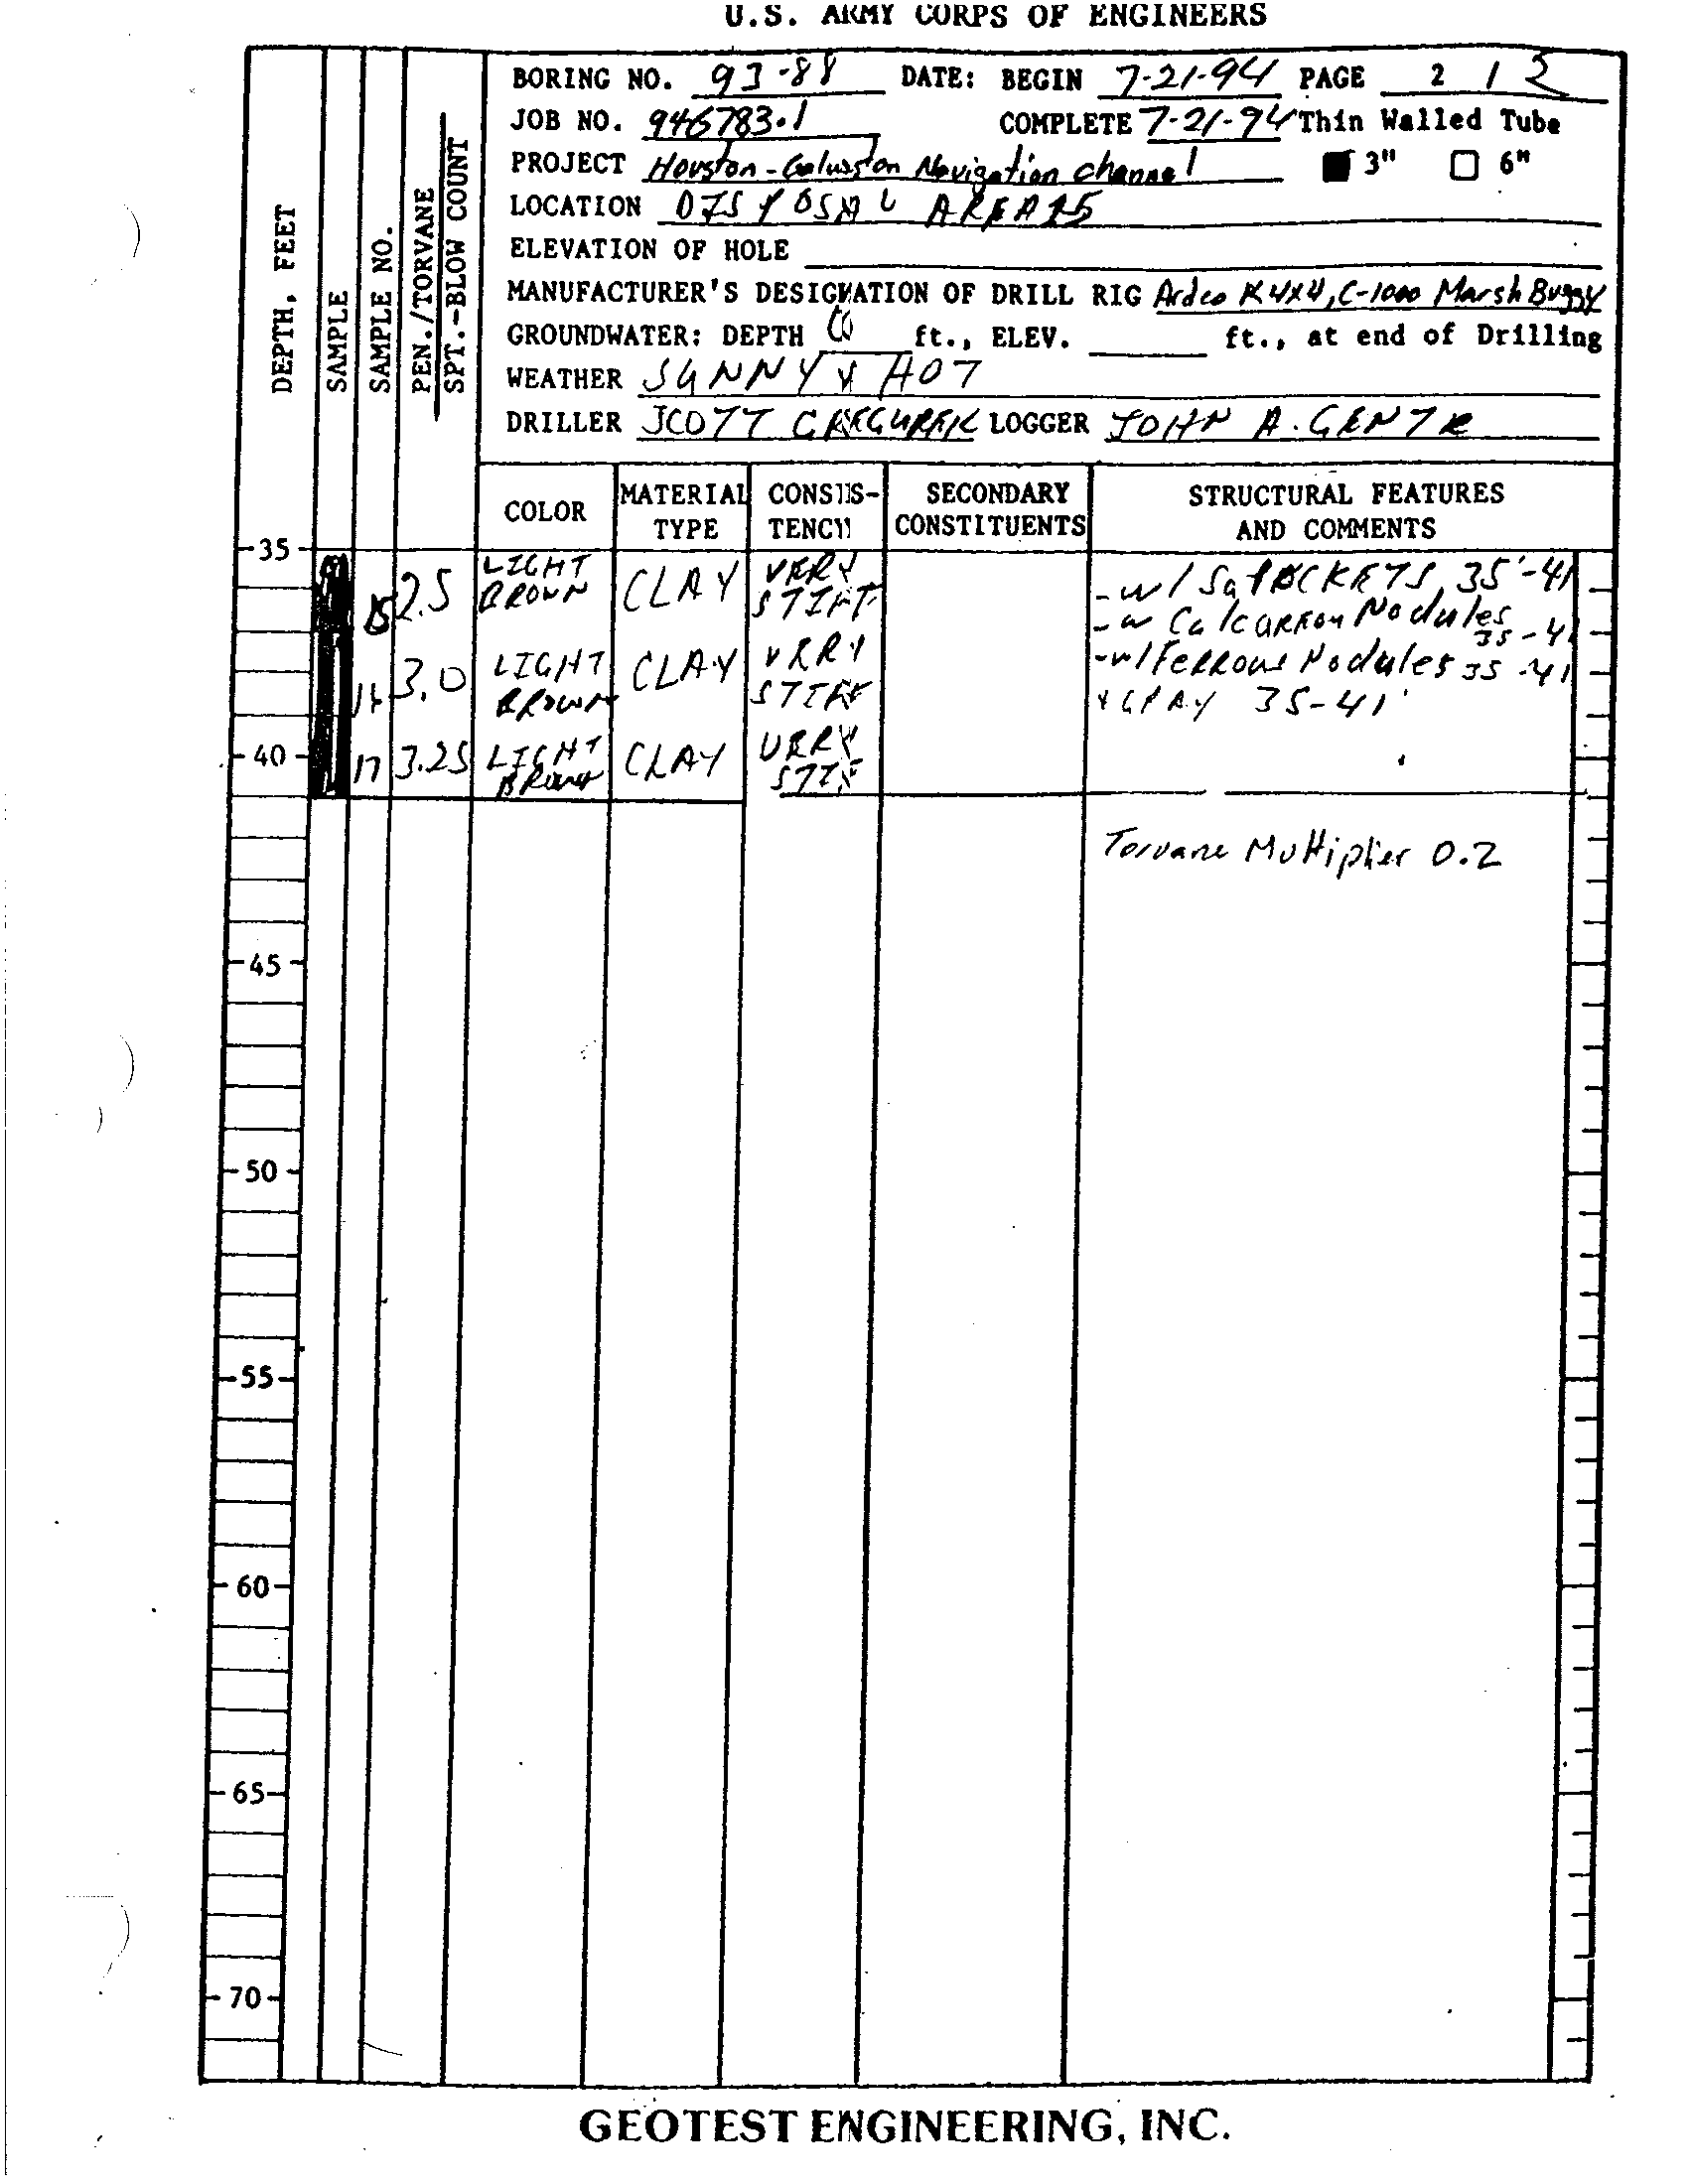 U.S. ARMY CORPS OF ENGINEERS
BORING NO. 93-88 DATE: BEGIN 7-21-94 PAGE 2 / 2
JOB NO. 946783.1 COMPLETE 7-21-94 Thin Walled Tube
PROJECT Houston-Galveston Navigation channel 3" 6"
LOCATION DISPOSAL AREA 15
ELEVATION OF HOLE
MANUFACTURER'S DESIGNATION OF DRILL RIG Ardco K 4x4, C-1000 Marsh Buggy
GROUNDWATER: DEPTH ft., ELEV. ft., at end of Drilling
WEATHER SUNNY & HOT
DRILLER SCOTT LOGGER JOHN A.
DEPTH, FEET
SAMPLE
SAMPLE NO.
PEN./TORVANE
SPT.-BLOW COUNT
COLOR
MATERIAL TYPE
CONSIS-TENCY
SECONDARY CONSTITUENTS
STRUCTURAL FEATURES AND COMMENTS
35
15 2.5 LIGHT BROWN CLAY VERY STIFF
- w/ Sa POCKETS 35'-41
- w Calcareou Nodules 35-41
16 3.0 LIGHT BROWN CLAY VERY STIFF
- w/ Ferrous Nodules 35-41
& GRAY 35-41'
40
17 3.25 LIGHT BROWN CLAY VERY STIF
Torvane Multiplier 0.2
45
50
55
60
65
70
GEOTEST ENGINEERING, INC.